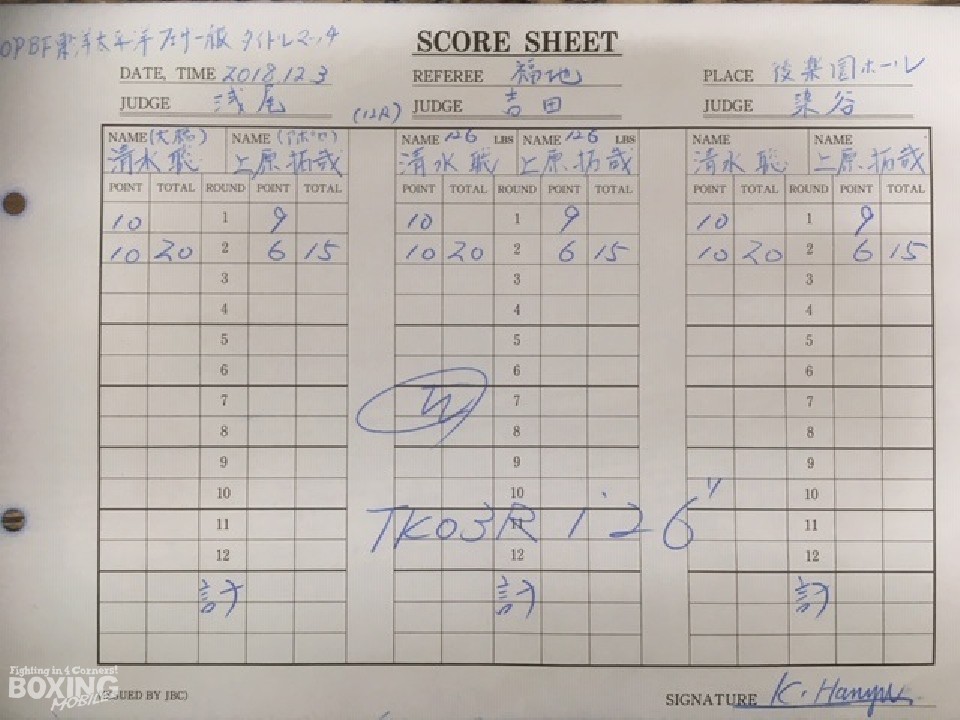 OPBF東洋太平洋フェザー級タイトルマッチ
SCORE SHEET
DATE, TIME 2018.12.3 REFEREE 福地 PLACE 後楽園ホール
JUDGE 浅尾 (12R) JUDGE 吉田 JUDGE 染谷
NAME (大橋) NAME (アポロ) NAME 126 LBS NAME 126 LBS NAME NAME
清水聡 上原拓哉 清水聡 上原拓哉 清水聡 上原拓哉
POINT TOTAL ROUND POINT TOTAL POINT TOTAL ROUND POINT TOTAL POINT TOTAL ROUND POINT TOTAL
10 1 9 10 1 9 10 1 9
10 20 2 6 15 10 20 2 6 15 10 20 2 6 15
3 3 3
4 4 4
5 5 5
6 6 6
7 W 7 7
8 8 8
9 9 9
10 10 10
11 TKO3R 11 1'26" 11
12 12 12
計 計 計
Fighting in 4 Corners!
BOXING
MOBILE
(ISSUED BY JBC) SIGNATURE K. Hanyu